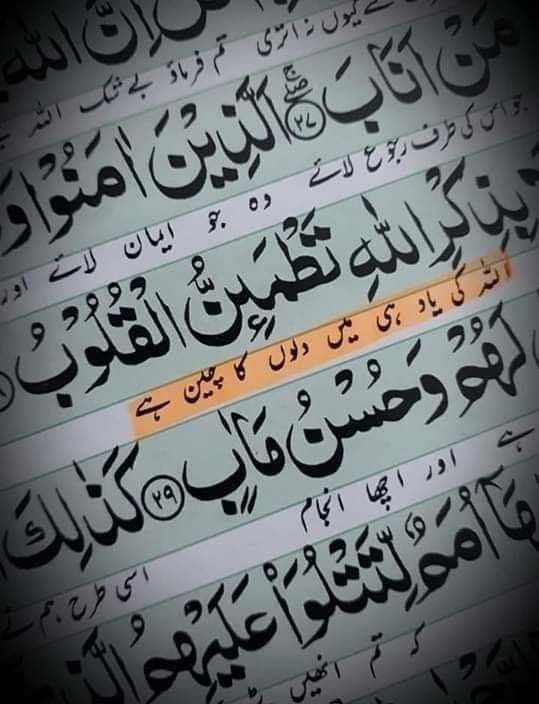 اِنَّ اللّٰهَ
کیوں نہ اتری تم فرماؤ بے شک اللہ
مَنْ اَنَابَ ۖۚ ﴿۲۷﴾ اَلَّذِیْنَ اٰمَنُوْا وَ
جو اس کی طرف رجوع لائے وہ جو ایمان لائے اور
بِذِكْرِ اللّٰهِ تَطْمَىِٕنُّ الْقُلُوْبُ
اللہ کی یاد ہی میں دلوں کا چین ہے
لَهُمْ وَ حُسْنُ مَاٰبٍ ﴿۲۹﴾ كَذٰلِكَ
ہے اور اچھا انجام اسی طرح ہم نے
اُمَمٌ لِّتَتْلُوَاۡ عَلَیْهِمُ الَّذِ
کہ تم انھیں